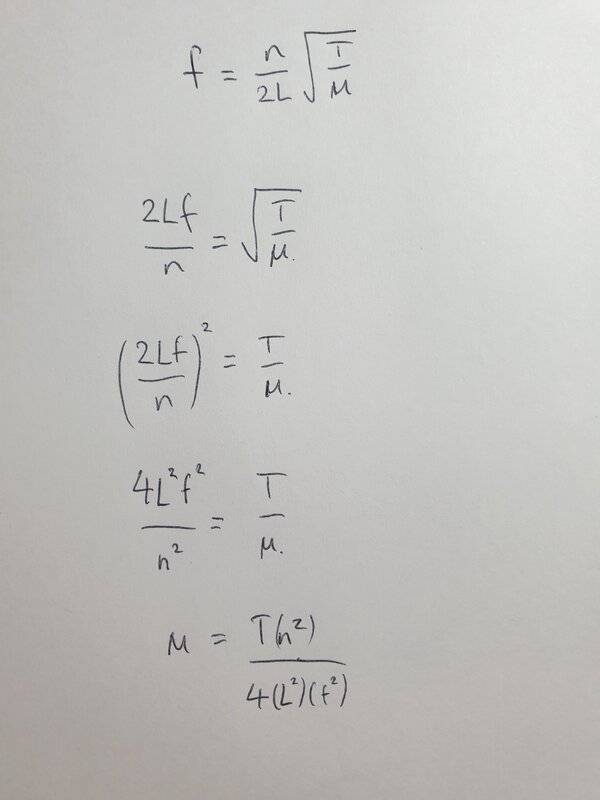 f = n/2L √(T/μ)
2Lf/n = √(T/μ.)
(2Lf/n)² = T/μ.
4L²f²/n² = T/μ.
μ = T(n²)/4(L²)(f²)